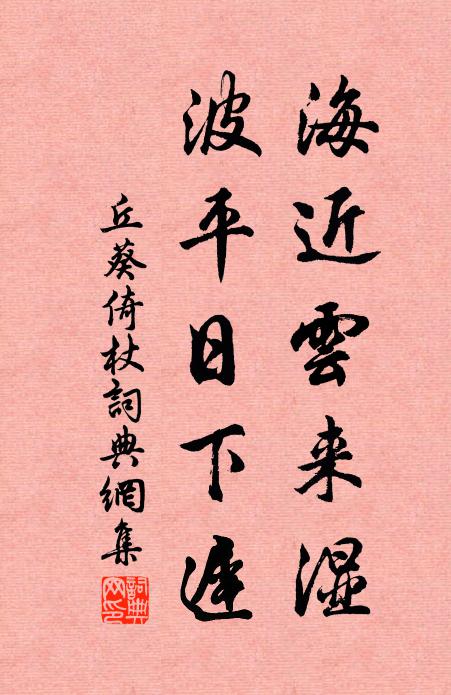 海近雲来湿
波平日下遲
丘葵倚杖詞典網集
詞典網印